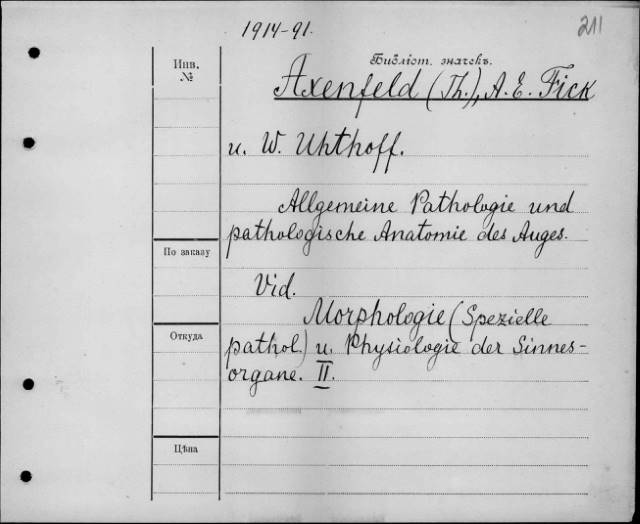 1914-91.
211
Инв.
№
Библіот. значекъ.
Axenfeld (Th.), A. E. Fick
u. W. Uhthoff.
Allgemeine Pathologie und
pathologische Anatomie des Auges.
По заказу
Vid.
Morphologie (Spezielle
Откуда
pathol.) u. Physiologie der Sinnes-
organe. II.
Цѣна